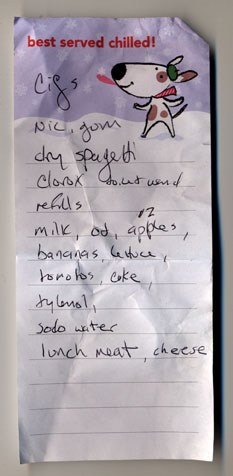 best served chilled!
Cigs
Nic. gum
dry spagetti
Clorox toilet wand
refills
#2
milk, oj, apples,
bananas, lettuce,
tomatos, coke,
tylenol,
soda water
lunch meat, cheese